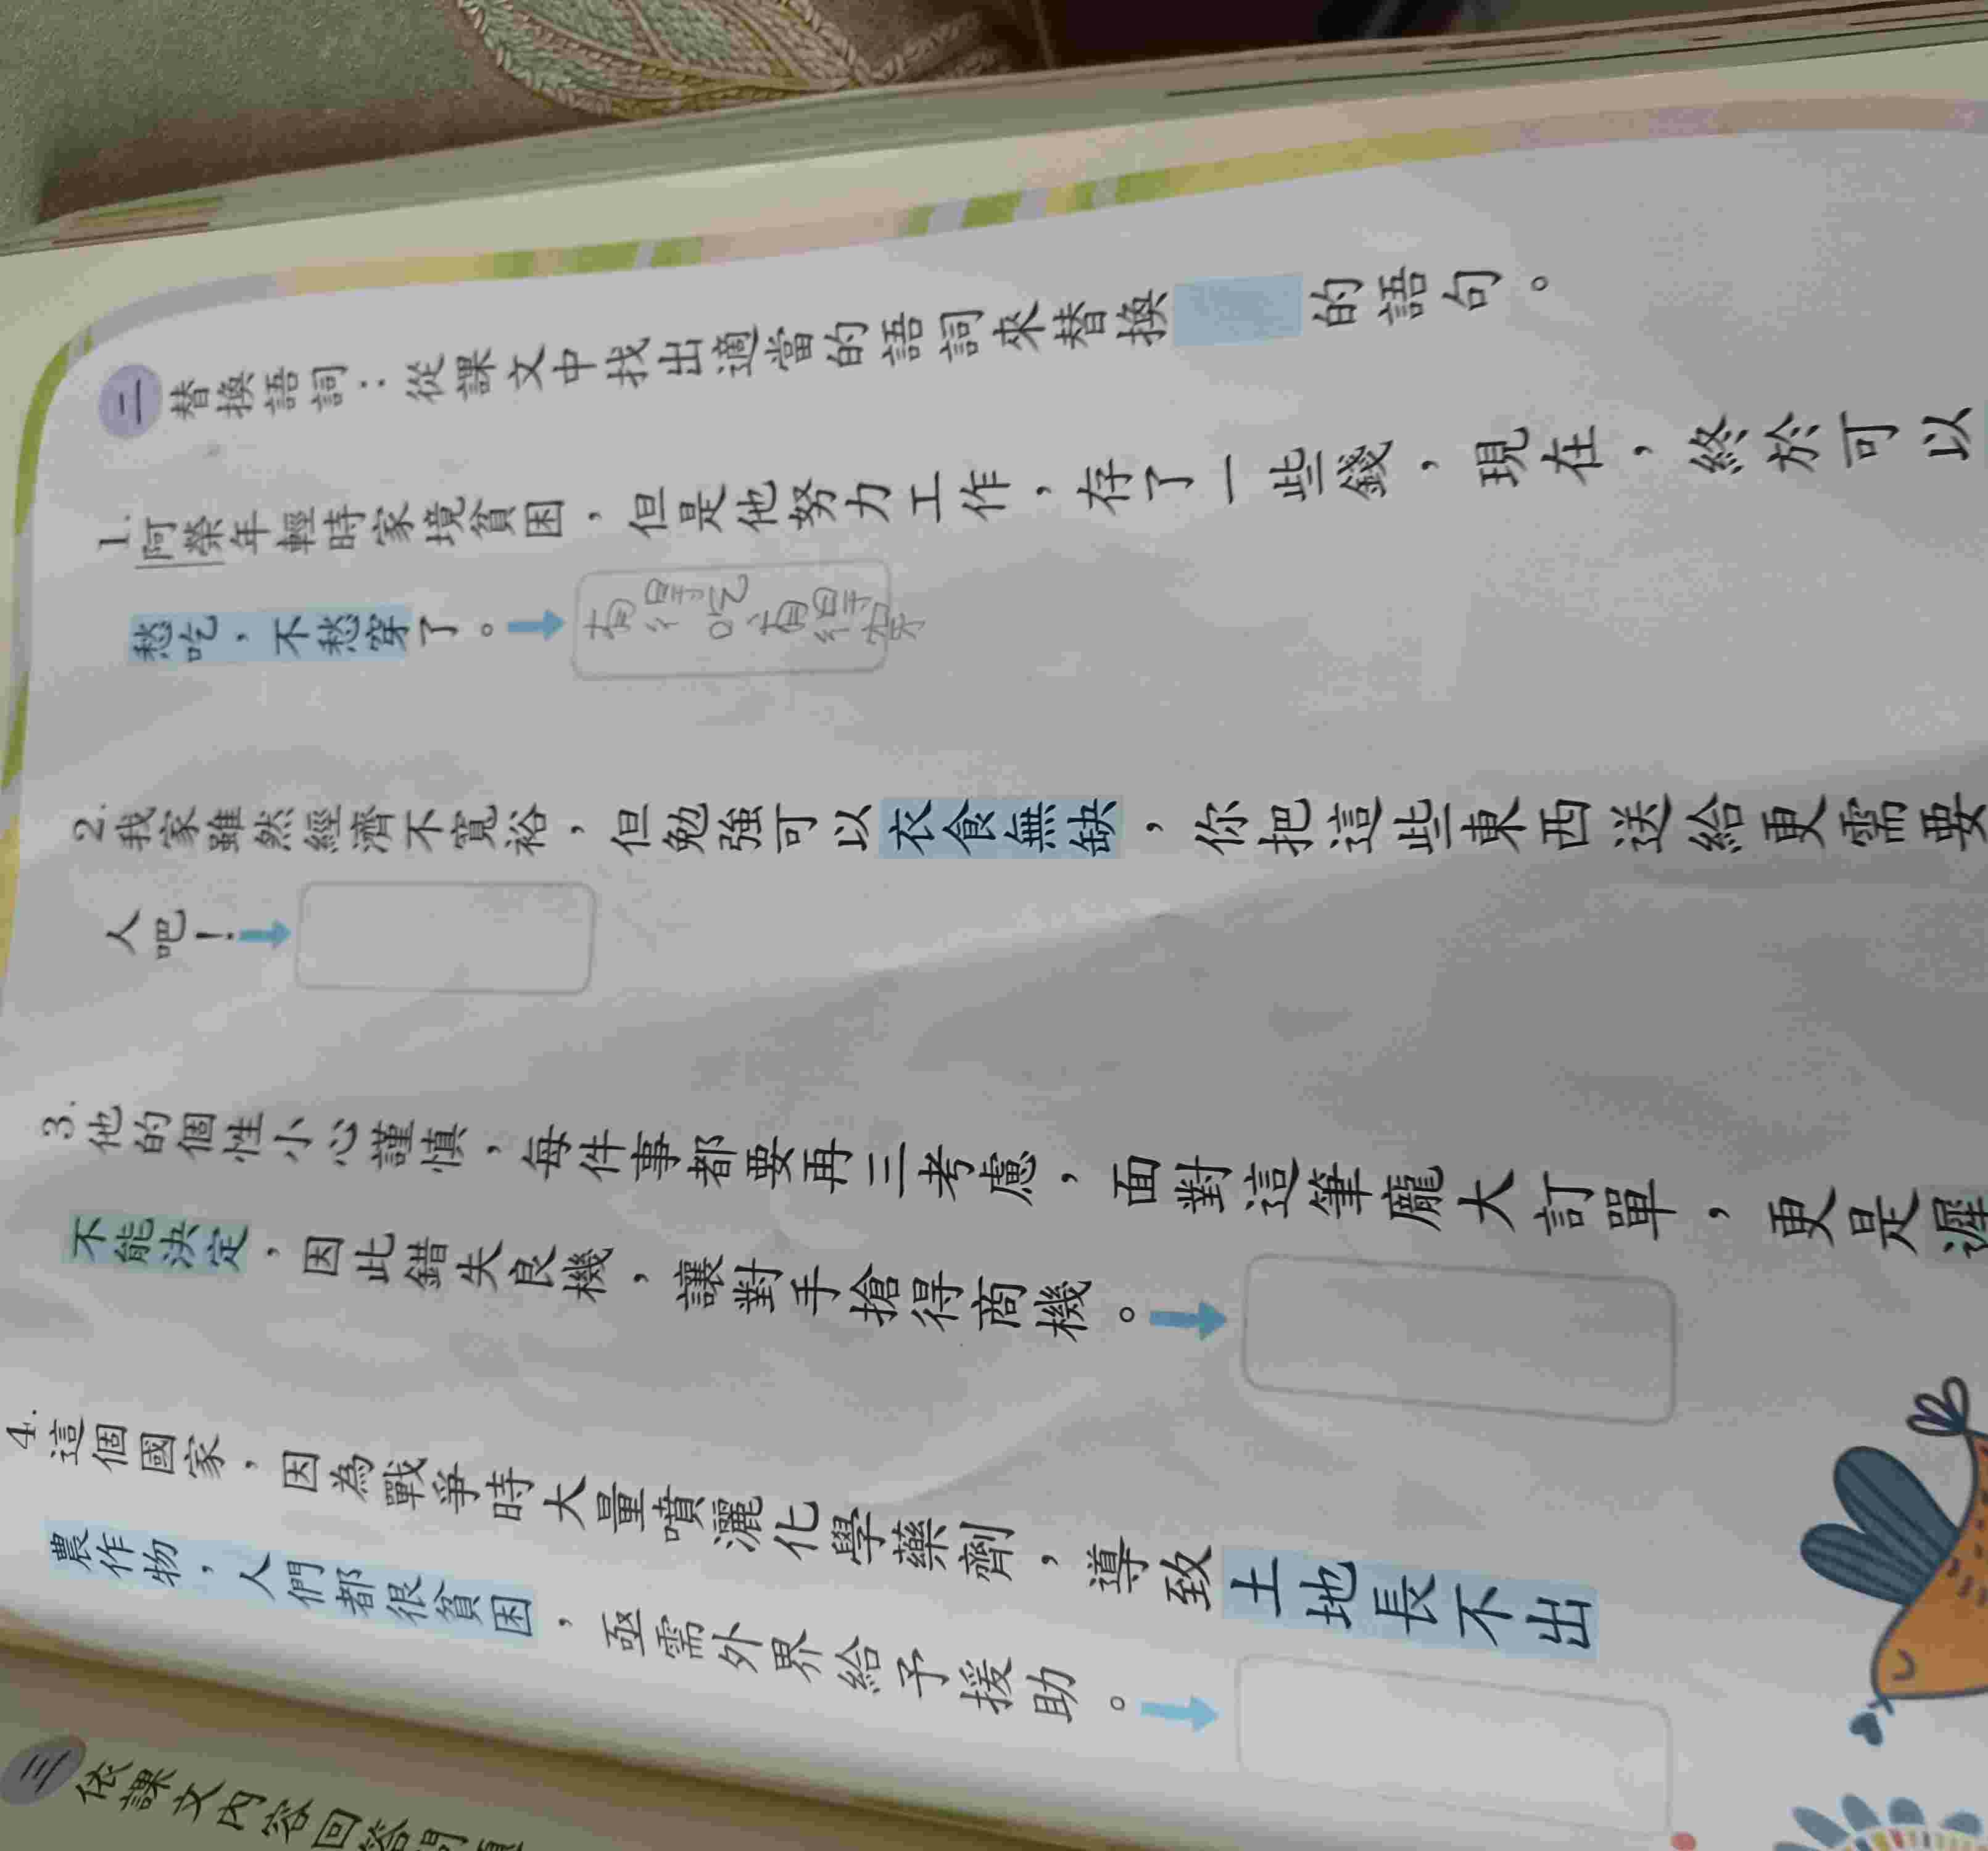 二 替換語詞：從課文中找出適當的語詞來替換 的語句。
1.阿榮年輕時家境貧困，但是他努力工作，存了一些錢，現在，終於可以
愁吃，不愁穿了。
有得吃有得穿
2.我家雖然經濟不寬裕，但勉強可以衣食無缺，你把這些東西送給更需要
人吧！
3.他的個性小心謹慎，每件事都要再三考慮，面對這筆龐大訂單，更是遲
不能決定，因此錯失良機，讓對手搶得商機。
4.這個國家，因為戰爭時大量噴灑化學藥劑，導致土地長不出
農作物，人們都很貧困，亟需外界給予援助。
三 依課文內容回答問